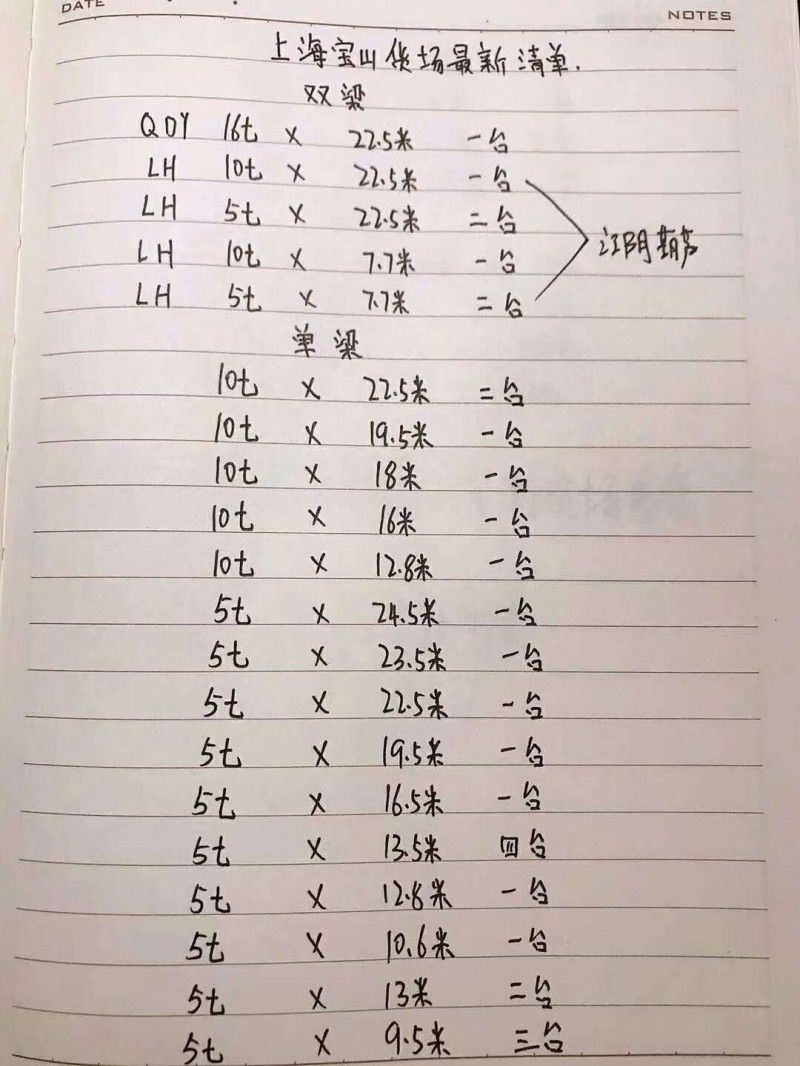 DATE
NOTES
上海宝山货场最新清单.
双梁
QDY 16t × 22.5米 一台
LH 10t × 22.5米 一台
LH 5t × 22.5米 二台
江阴葫芦
LH 10t × 7.7米 一台
LH 5t × 7.7米 二台
单梁
10t × 22.5米 二台
10t × 19.5米 一台
10t × 18米 一台
10t × 16米 一台
10t × 12.8米 一台
5t × 24.5米 一台
5t × 23.5米 一台
5t × 22.5米 一台
5t × 19.5米 一台
5t × 16.5米 一台
5t × 13.5米 四台
5t × 12.8米 一台
5t × 10.6米 一台
5t × 13米 二台
5t × 9.5米 三台